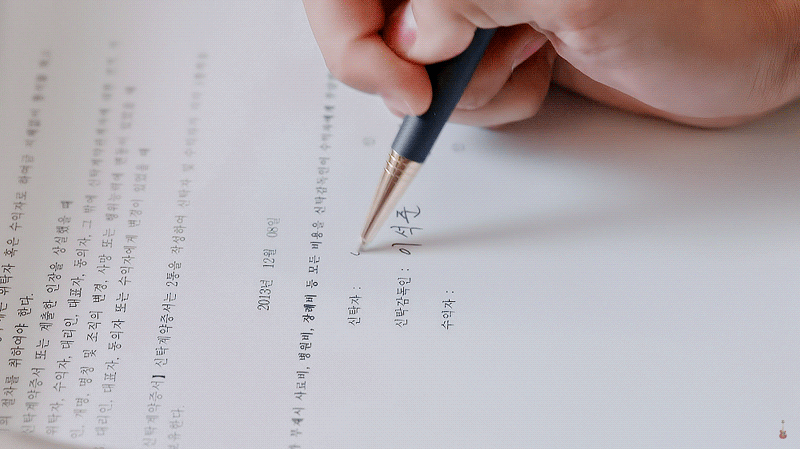 의 절차를 취하여야 한다.
신탁계약증서 또는 계출한 인장을 상실했을 때
위탁자, 수익자, 대리인, 대표자, 동의자, 그 밖에 신탁계약관계자에
인, 개명, 명칭 및 조직의 변경, 사망 또는 행위능력에 변동이 있었을 때
대리인, 대표자, 동의자 또는 수익자에게 변경이 있었을 때
신탁계약증서】 신탁계약증서는 2통을 작성하여 신탁자 및 수익자가
보유한다.
2013년 12월 08일
부재시 사료비, 병원비, 장례비 등 모든 비용을 신탁감독인이 수익자에게
신탁자 :
신탁감독인 : 이석준
수익자 :